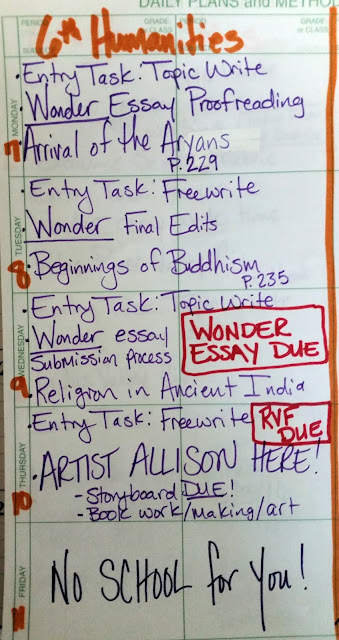 DAILY PLANS and METHO
PERIOD
GRADE or CLASS
PERIOD
GRADE or CLASS
6th Humanities
MONDAY
7
• Entry Task: Topic Write
• Wonder Essay Proofreading
• Arrival of the Aryans
P. 229
TUESDAY
8
• Entry Task: Freewrite
• Wonder Final Edits
• Beginnings of Buddhism
P. 235
WEDNESDAY
9
• Entry Task: Topic Write
• Wonder essay
Submission process
WONDER
ESSAY DUE
• Religion in Ancient India
THURSDAY
10
• Entry Task: Freewrite
RVF
DUE
• ARTIST ALLISON HERE!
- Storyboard DUE!
- Book work/making/art
FRIDAY
11
No SCHOOL for You!